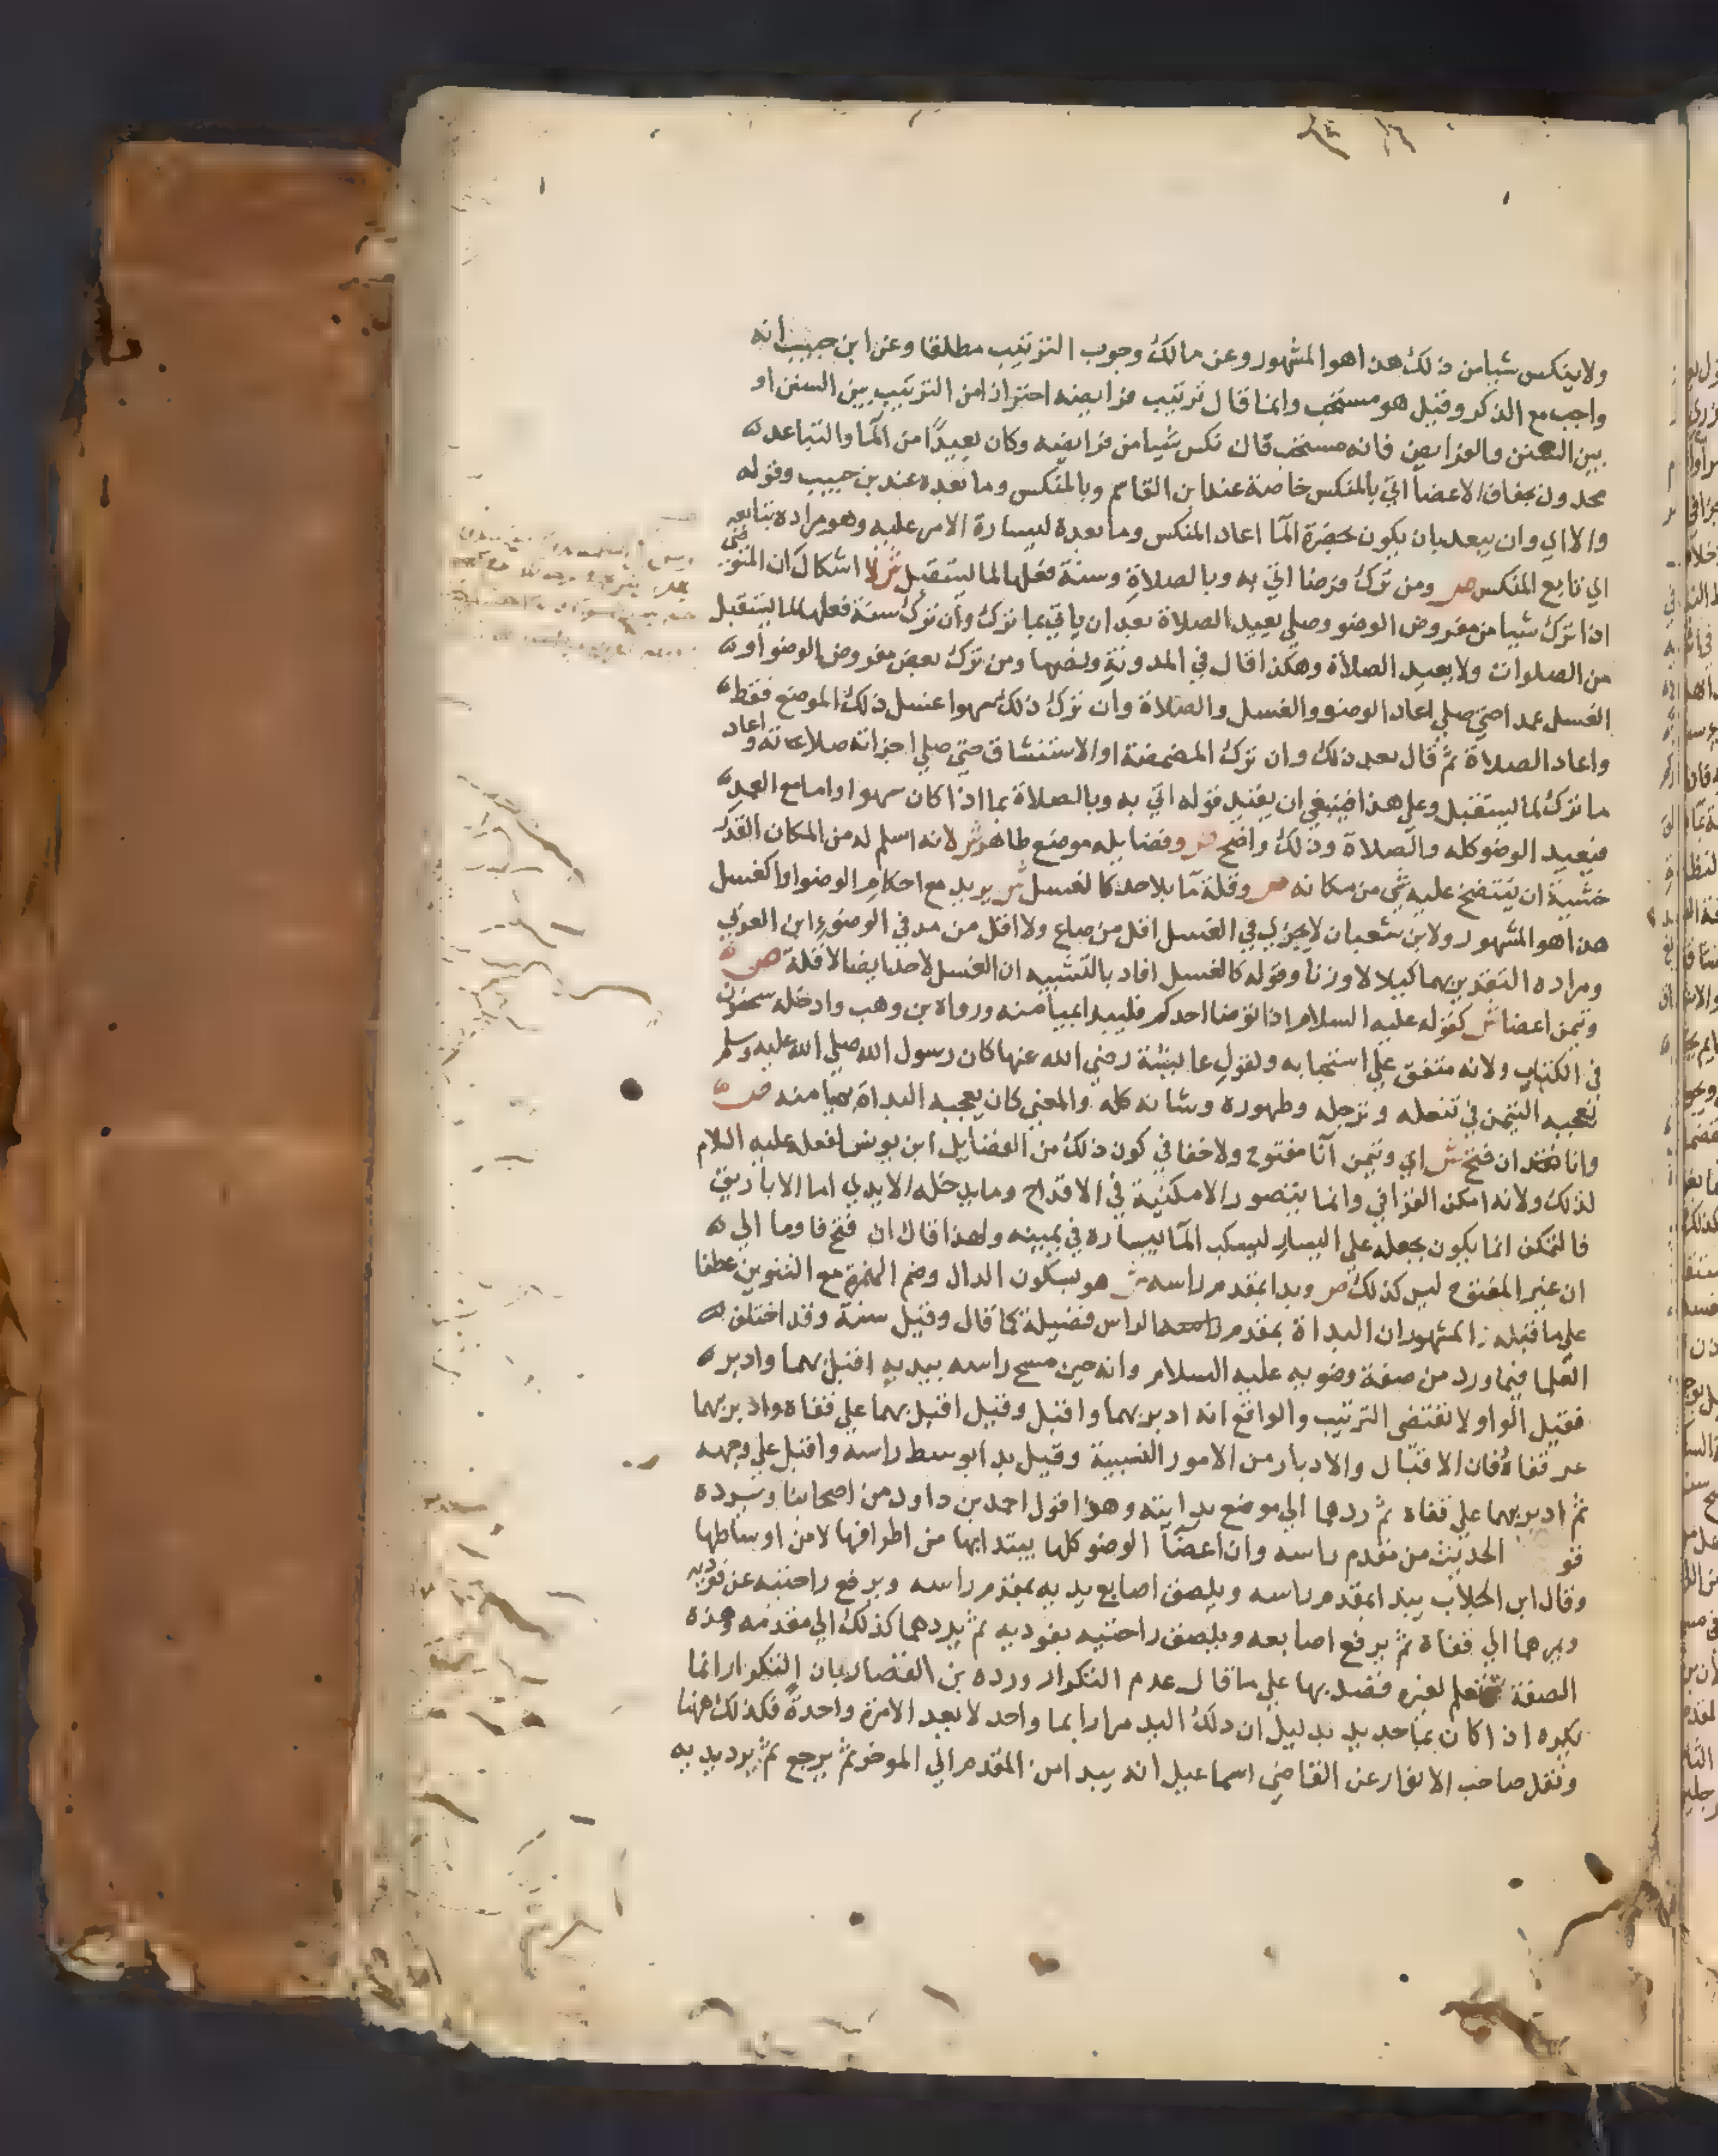 ولا ينكس شيا من ذلك هذا هو المشهور وعن مالك وجوب الترتيب مطلقا وعن ابن حبيب انه
واجب مع الذكر وقيل هو مستحب وانما قال ترتيب فرايضه احترازا من الترتيب بين السنن او
بين السنن والفرايض فانه مستحب قال نكس شيا من فرايضه وكان بعيدا من الما والتباعد
محدود بجفاف الاعضا اتي بالمنكس خاصة عند ابن القاسم وبالمنكس وما بعده عند بن حبيب وقوله
والا اي وان يبعد بان يكون بحضرة الما اعاد المنكس وما بعده ليسارة الامر عليه وهو مراده بتابعه
اي تابع المنكس ص ومن ترك فرضا اتي به وبالصلاة وسنة فعلها لما يستقبل ش لا اشكال ان المتوضي
اذا ترك شيا من مفروض الوضو وصلي يعيد الصلاة بعد ان ياتي بما ترك وان ترك سنة فعلها لما يستقبل
من الصلوات ولا يعيد الصلاة وهكذا قال في المدونة ونصها ومن ترك بعض مفروض الوضو او
الغسل عمدا حتي صلي اعاد الوضو والغسل والصلاة وان ترك ذلك سهوا غسل ذلك الموضع فقط
واعاد الصلاة ثم قال بعد ذلك وان ترك المضمضة او الاستنشاق حتي صلي اجزاته صلاته واعاد
ما ترك لما يستقبل وعلي هذا فينبغي ان يقيد قوله اتي به وبالصلاة بما اذا كان سهوا واما مع العمد
فيعيد الوضو كله والصلاة وذلك واضح ص وفضايله موضع طاهر ش لانه اسلم له من المكان القذر
خشية ان ينتضح عليه شي من مكانه ص وقلة ما بلا حد كالغسل ش يريد مع احكام الوضو او الغسل
هذا هو المشهور ولابن شعبان لا يجزي في الغسل اقل من صاع ولا اقل من مد في الوضوء ابن العربي
ومراده التقدير بهما كيلا لا وزنا وقوله كالغسل افاد بالتشبيه ان الغسل لا حد ايضا لاقله ص
وتيمن اعضا ش كقوله عليه السلام اذا توضا احدكم فليبدا بميامنه ورواه بن وهب وادخله سحنون
في الكتاب ولانه متفق علي استحبابه ولقول عايشة رضي الله عنها كان رسول الله صلي الله عليه وسلم
يعجبه التيمن في تنعله وترجله وطهوره وشانه كله والمعني كان يعجبه البداة بميامنه ص
وانا ان فتح ش اي وتيمن انا مفتوح ولا خفا في كون ذلك من الفضايل ابن يونس لفعله عليه السلام
لذلك ولانه امكن القرافي وانما يتصور الامكنية في الاقداح وما يدخله الايدي اما الاباريق
فالتمكن انما يكون بجعله علي اليسار ليسكب الما بيساره في يمينه ولهذا قال ان فتح فاوما الي
ان غير المفتوح ليس كذلك ص وبدا بمقدم راسه ش هو بسكون الدال وضم الهمزة مع التنوين عطفا
علي ما قبله المشهور ان البداة بمقدم الراس فضيلة كما قال وقيل سنة وقد اختلف
العلما فيما ورد من صفة وضوبه عليه السلام وانه حين مسح راسه بيديه اقبل بهما وادبر
فقيل الواو لا تقتضي الترتيب والواقع انه ادبر بهما واقبل وقيل اقبل بهما علي قفاه وادبر بهما
عن قفاه فان الاقبال والادبار من الامور النسبية وقيل بدا بوسط راسه واقبل علي وجهه
ثم ادبر بهما علي قفاه ثم ردهما الي موضع بدايته وهذا قول احمد بن داود من اصحابنا ويرده
قو الحديث من مقدم راسه وان اعضا الوضو كلها يبتدا بها من اطرافها لا من اوساطها
وقال ابن الجلاب يبدا بمقدم راسه ويلصق اصابع يديه بمقدم راسه ويرفع راحتيه عن فوديه
ويمرهما الي قفاه ثم يرفع اصابعه ويلصق راحتيه بفوديه ثم يردهما كذلك الي مقدمه وهذه
الصفة لم لغيره فقصد بها علي ما قال عدم التكرار ورده بن القصار بان التكرار انما
يكره اذا كان بما جديد بدليل ان دلك اليد مرارا بما واحد لا يعد الا مرة واحدة فكذلك ههنا
ونقل صاحب الانوار عن القاضي اسماعيل انه يبدا من المقدم الي الموخر ثم يرجع ثم يرد يديه